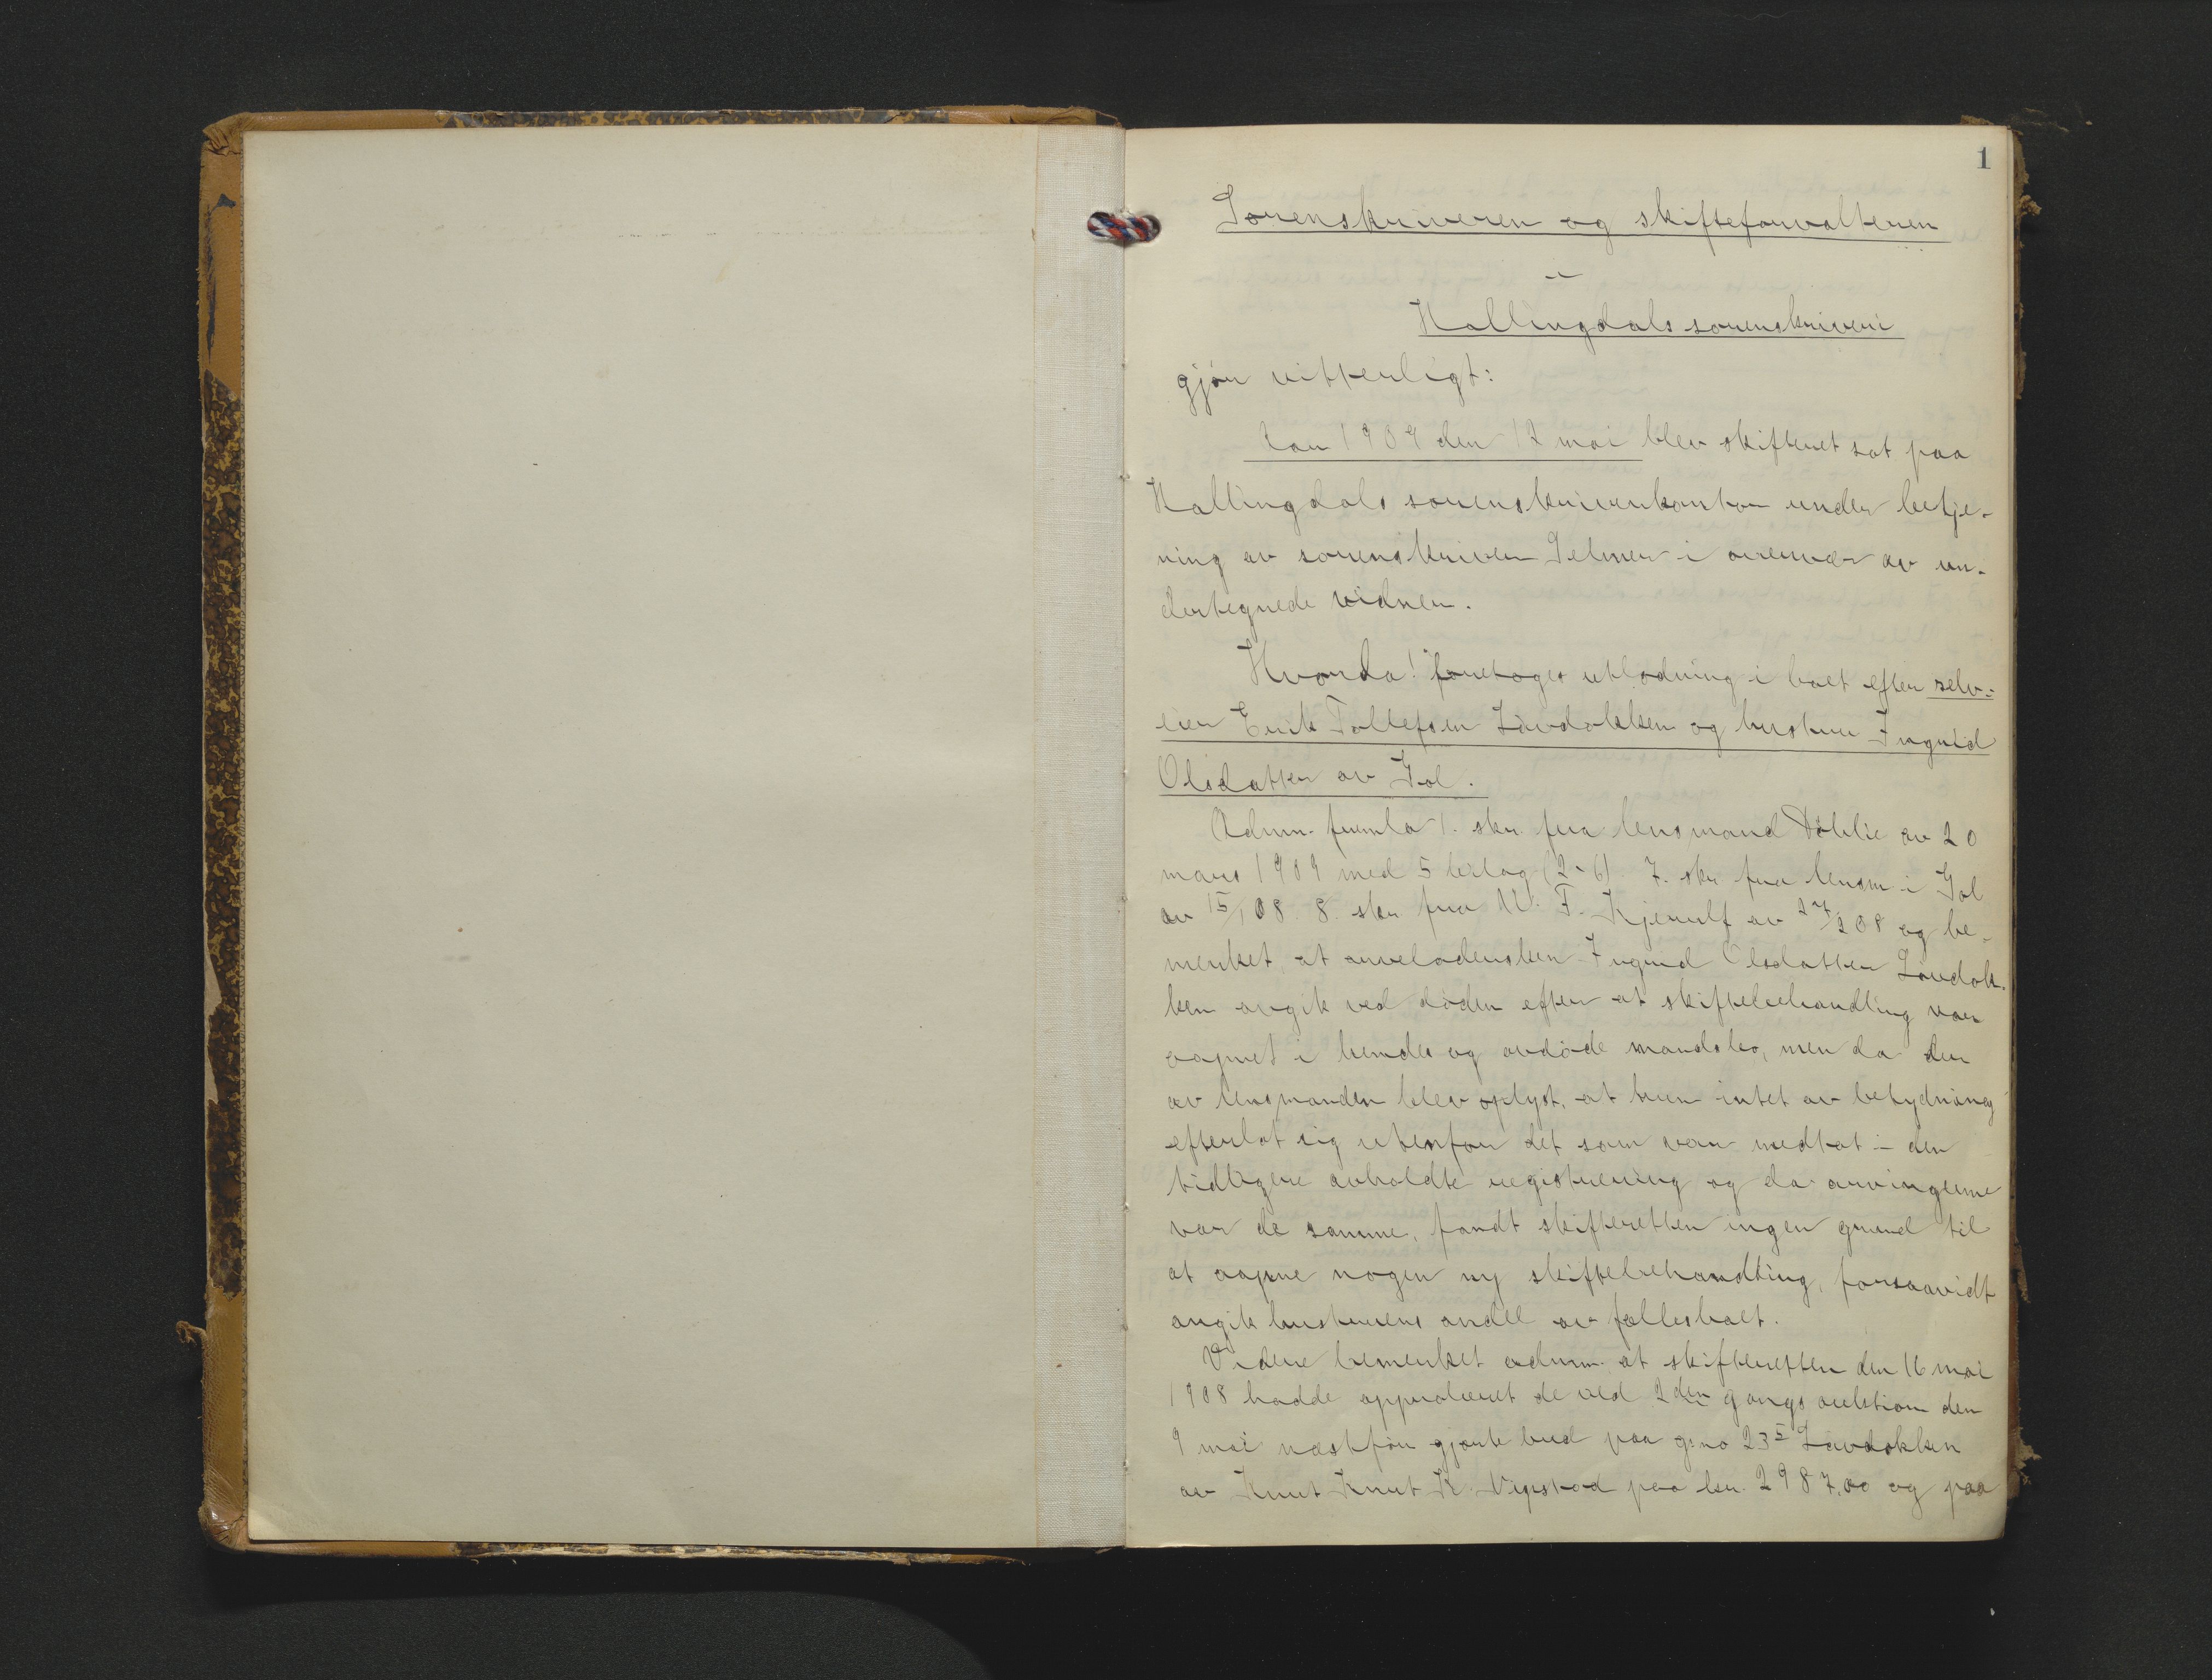 1
Sorenskriveren og skifteforvalteren
i
Hallingdals sorenskriveri
gjør vitterligt:
Aar 1909 den 12 mai blev skifteret sat paa
Hallingdals sorenskriverkontor under betje-
ning av sorenskriver Selmer i overvær av un-
dertegnede vidner.
Hvorda! foretoges utlodning i boet efter selv-
eier Erik Tollefsen Løvdokken og hustru Ingrid
Olsdatter av Gol.
Adm. fremla 1. skr. fra lensmand Døhlie av 20
mars 1909 med 5 bilag (2-6) 7. skr fra lensm i Gol
av 15/1 08. 8. skr fra Th. F. Kjerulf av 27/2 08 og be-
merket, at arveladersken Ingrid Olsdatter Løvdok-
ken avgik ved døden efter at skiftebehandling var
aapnet i hendes og avdøde mands bo, men da der
av lensmanden blev oplyst, at hun intet av betydning
efterlot sig utenfor det som var medtat i den
tidligere avholdte registrering og da arvingerne
var de samme, fandt skifteretten ingen grund til
at aapne nogen ny skiftebehandling, forsaavidt
angik hustruens andel av fællesboet.
Videre bemerket adm. at skifteretten den 16 mai
1908 hadde approberet de ved 2den gangs auktion den
9 mai næstfør gjorte bud paa gno 23⁵ Løvdokken
av Knut Knut K. paa kr. 2987,00 og paa